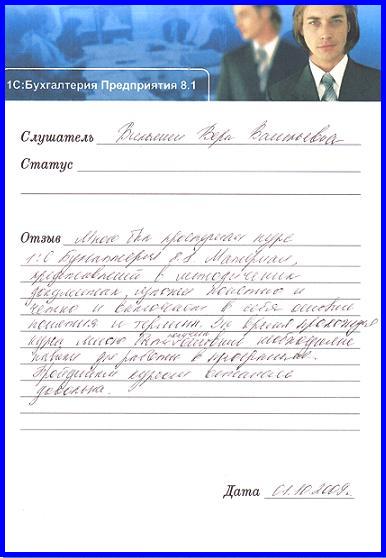 1С:Бухгалтерия Предприятия 8.1
Слушатель Вера Васильевна
Статус
Отзыв Мною был прослушан курс
1:С Бухгалтерия Материал,
представленный в методических
документах, изложен понятно и
четко и включает в себя основные
понятия и термины. За время прохождения
курса мною были получены необходимые
навыки для работы в программе.
Пройденным курсом осталась
довольна.
Дата 01.10.2009г.